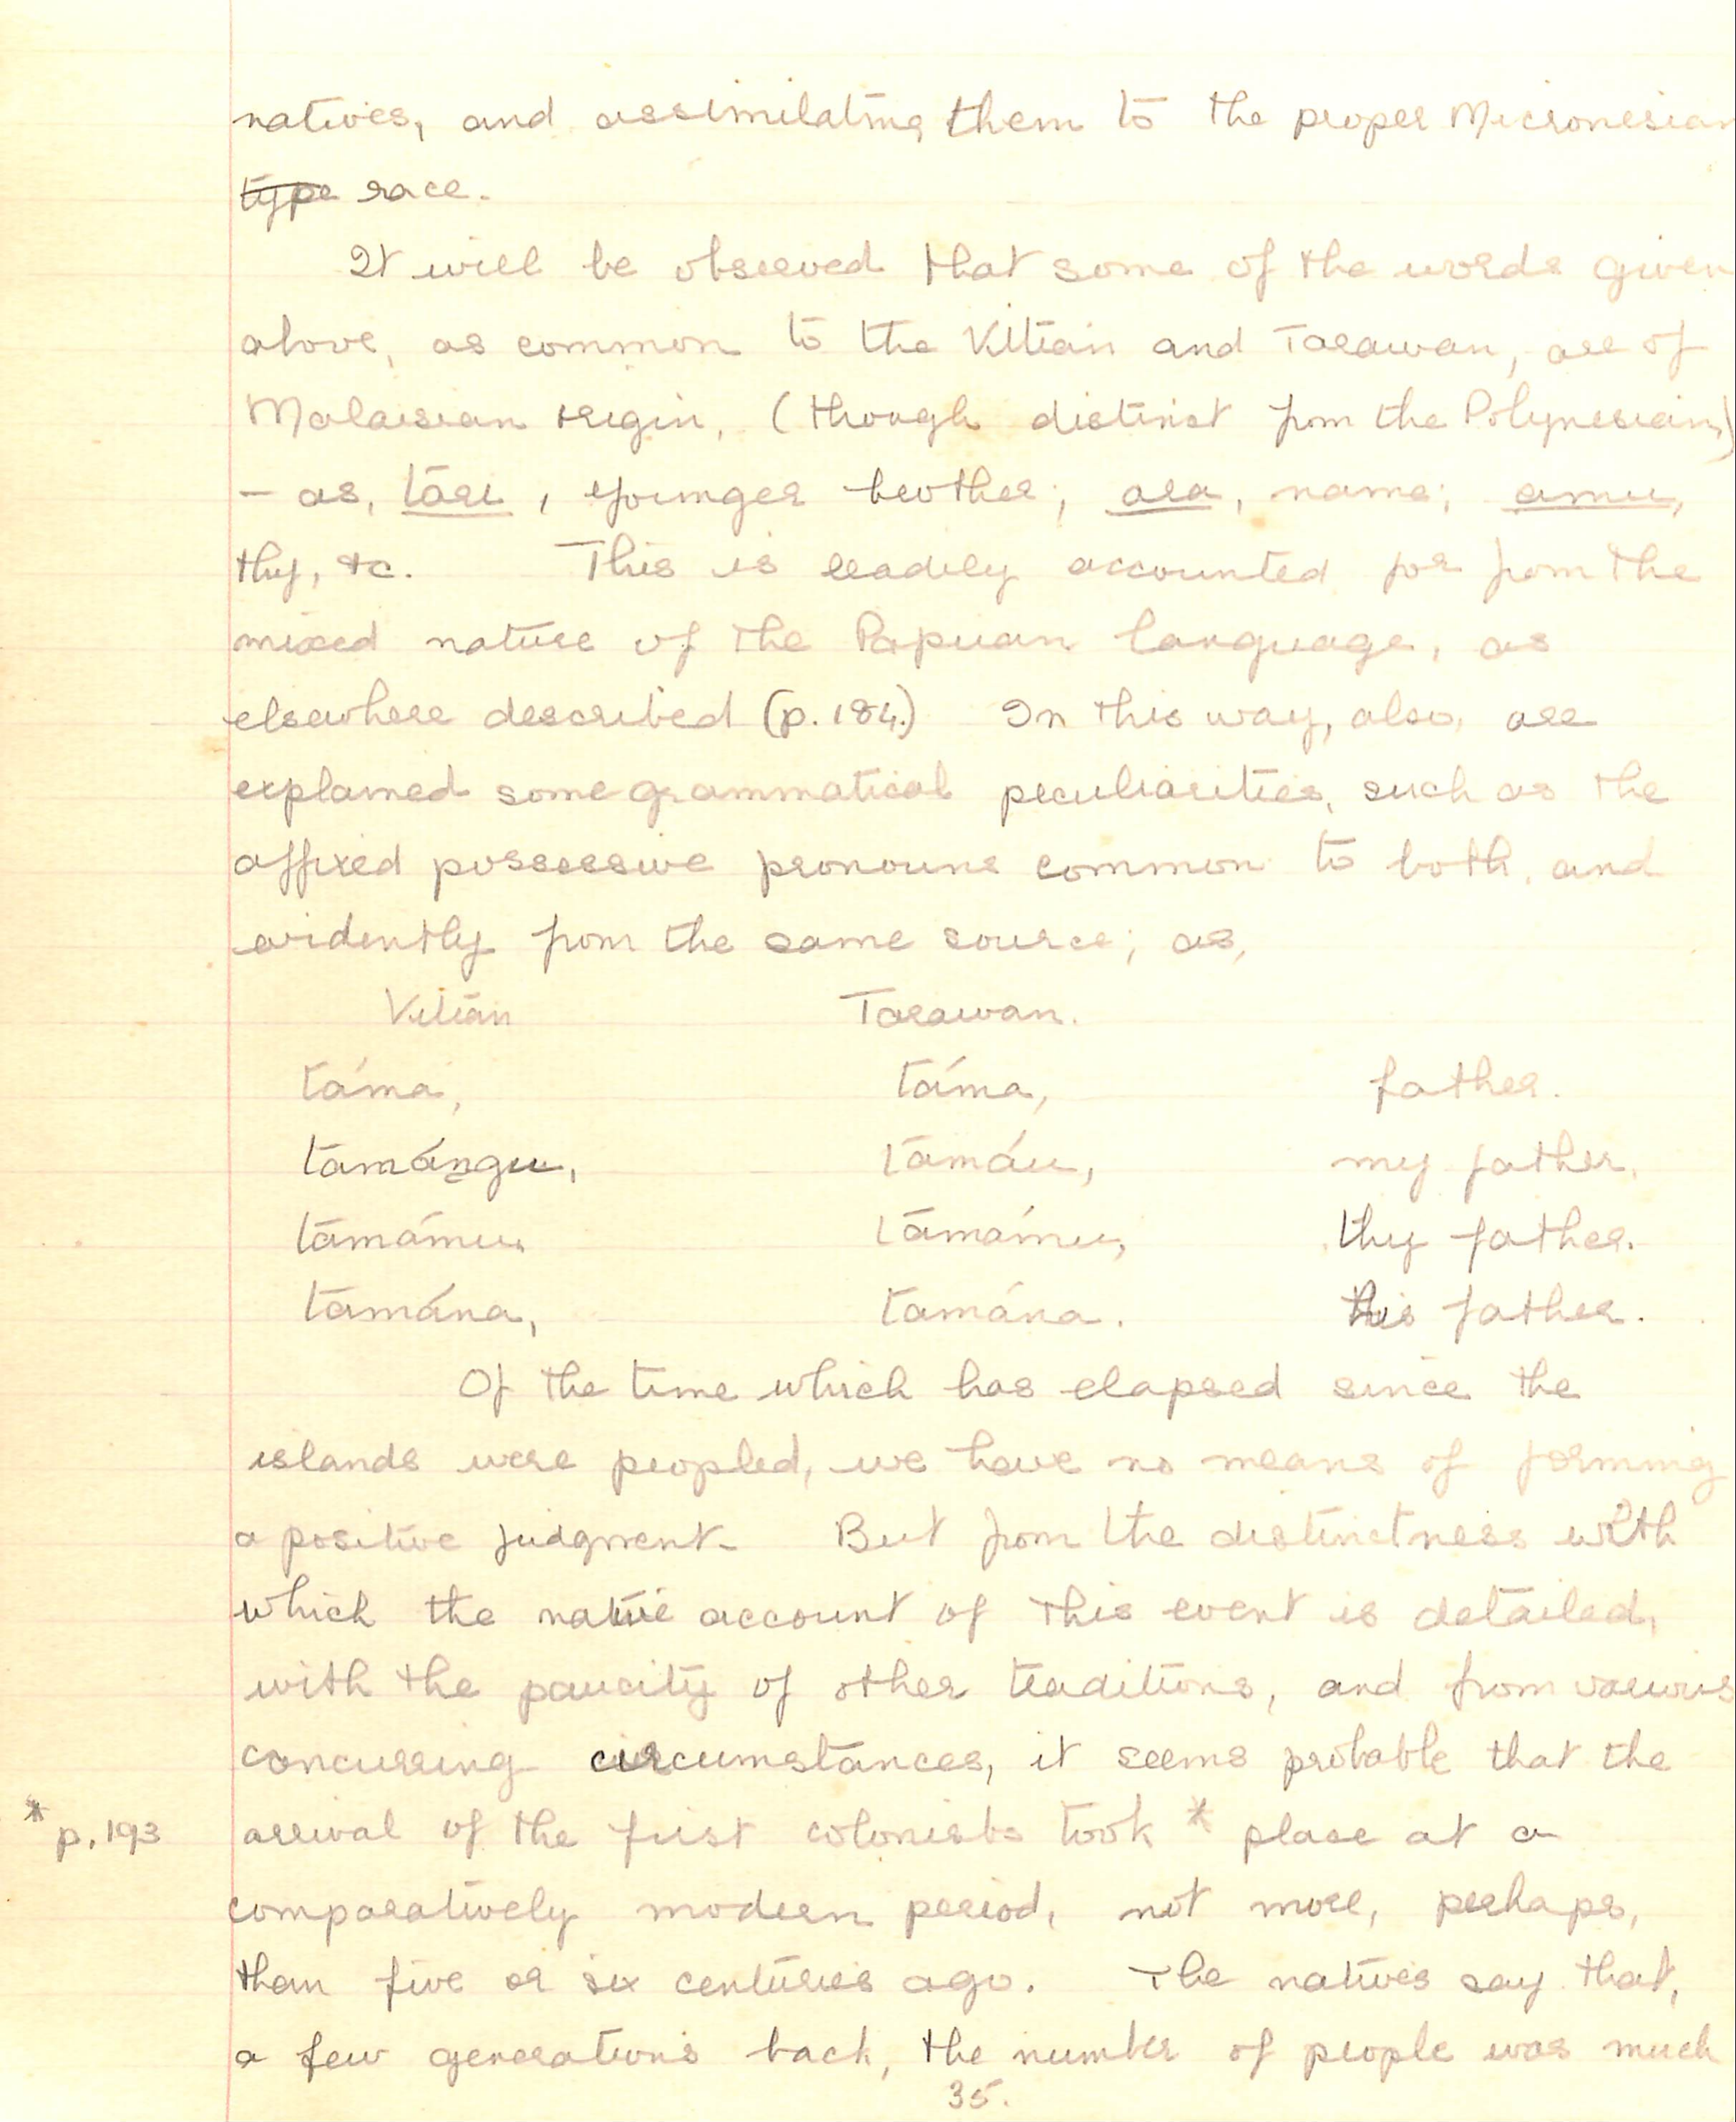 natives, and assimilating them to the proper Micronesian
~~type~~ race.
It will be observed that some of the words given
above, as common to the Vitian and Tarawan, are of
Malaisian origin, (though distinct from the Polynesian,)
– as, tāri, younger brother; ara, name; amu,
thy, &c. This is readily accounted for from the
mixed nature of the Papuan language, as
elsewhere described (p. 184.) In this way, also, are
explained some grammatical peculiarities, such as the
affixed possessive pronouns common to both, and
evidently from the same source; as,
Vitian Tarawan.
táma, táma, father.
tamángu, tamáu, my father.
tamámu, tamámu, thy father.
tamána, tamána. his father.
Of the time which has elapsed since the
islands were peopled, we have no means of forming
a positive judgment. But from the distinctness with
which the native account of this event is detailed,
with the paucity of other traditions, and from various
concurring circumstances, it seems probable that the
* p. 193
arrival of the first colonists took * place at a
comparatively modern period, not more, perhaps,
than five or six centuries ago. The natives say that,
a few generations back, the number of people was much
35.